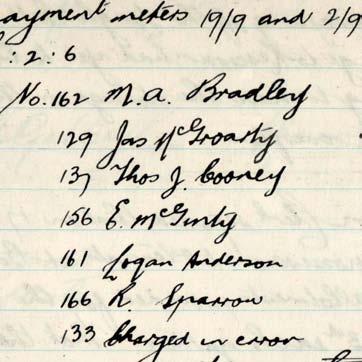 ayment meters 19/9 and 2/9
: 2 : 6
No. 162 M. A. Bradley
129 Jas McGroarty
137 Thos J. Cooney
156 E. McGinty
161 Logan Anderson
166 R. Sparrow
133 Charged in error